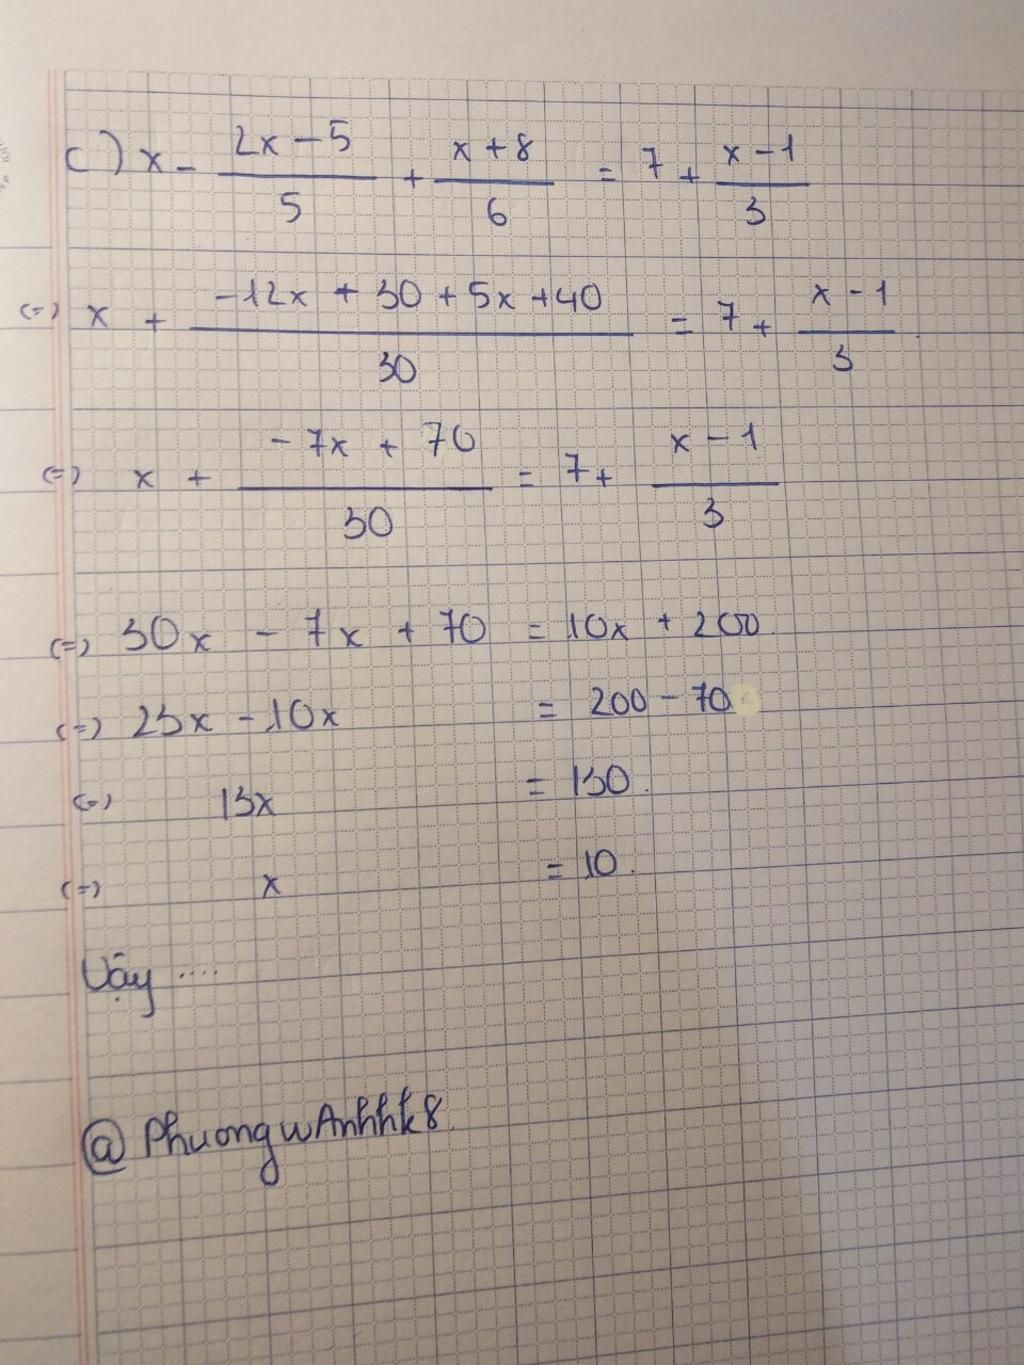 c) x - \frac{2x-5}{5} + \frac{x+8}{6} = 7 + \frac{x-1}{3}
(=) x + \frac{-12x + 30 + 5x + 40}{30} = 7 + \frac{x-1}{3}
(=) x + \frac{-7x + 70}{30} = 7 + \frac{x-1}{3}
(=) 30x - 7x + 70 = 10x + 200
(=) 23x - 10x = 200 - 70
(=) 13x = 130.
(=) x = 10.
Vậy ....
@PhuongwAnhhk8